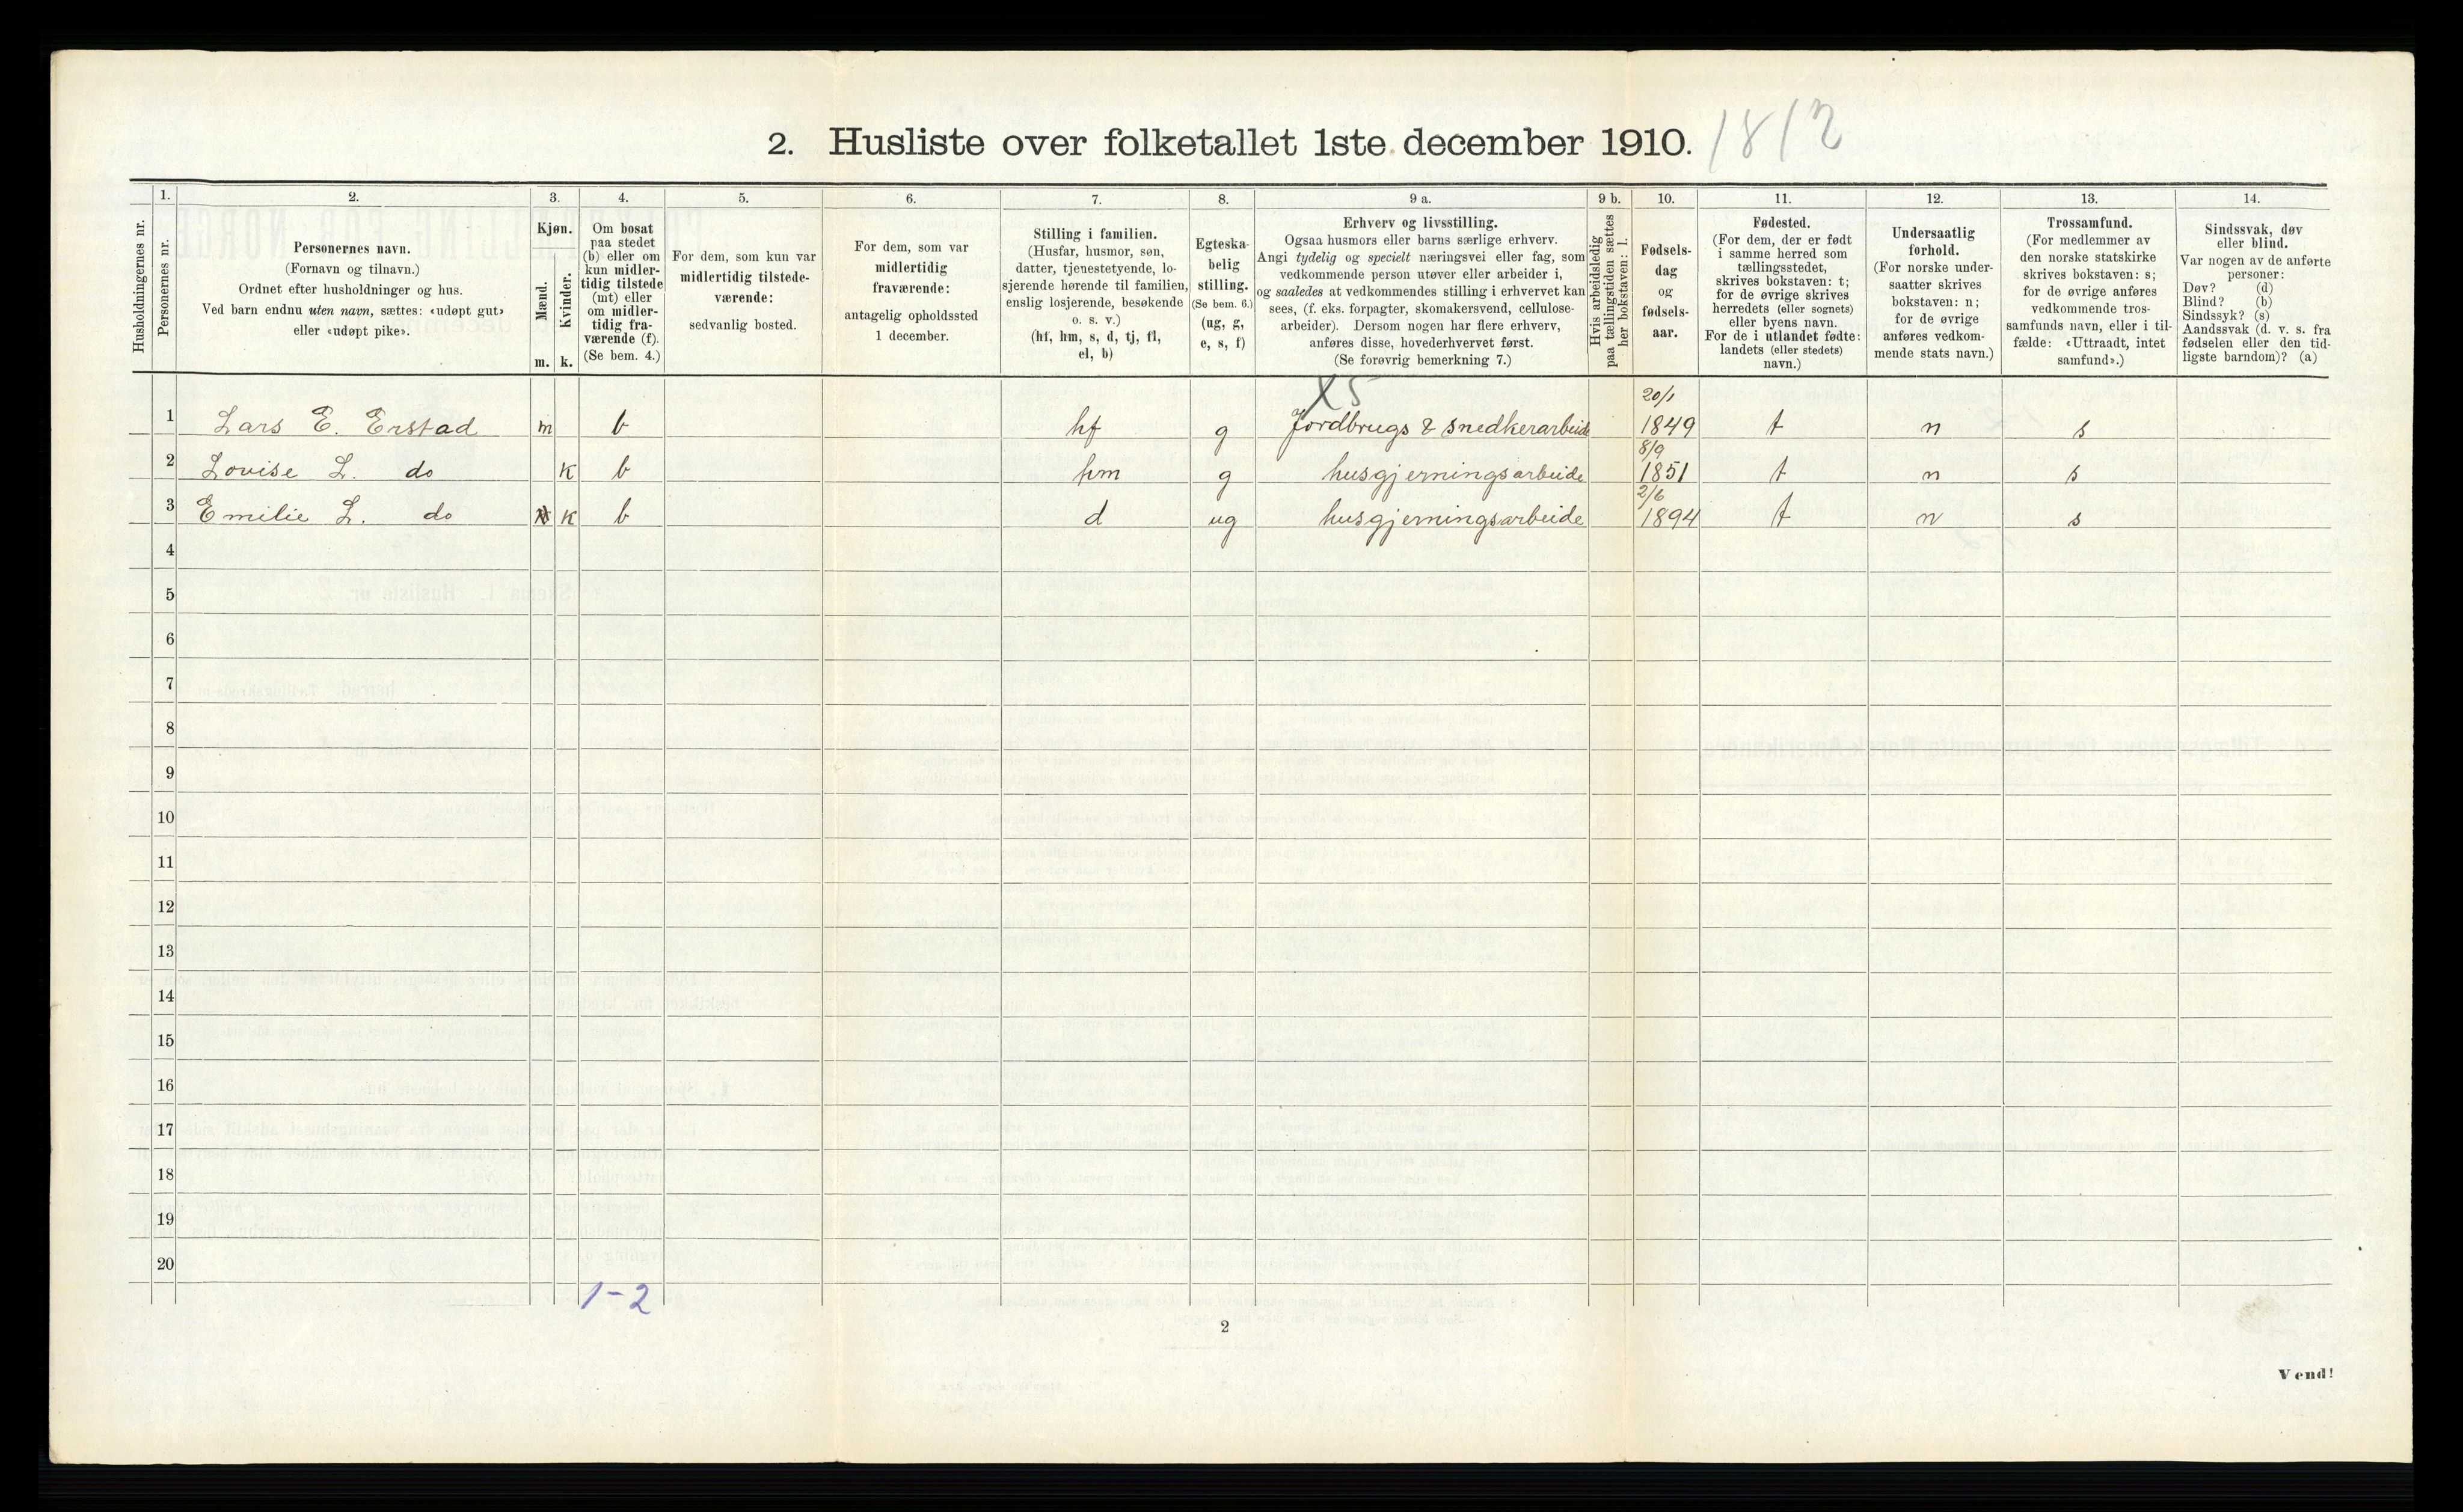 2. Husliste over folketallet 1ste december 1910. 1812
1. 2. 3. 4. 5. 6. 7. 8. 9 a. 9 b. 10. 11. 12. 13. 14.
Husholdningernes nr.
Personernes nr.
Personernes navn.
(Fornavn og tilnavn.)
Ordnet efter husholdninger og hus.
Ved barn endnu uten navn, sættes: «udøpt gut»
eller «udøpt pike».
Kjøn.
Mænd.
Kvinder.
m. k.
Om bosat
paa stedet
(b) eller om
kun midler-
tidig tilstede
(mt) eller
om midler-
tidig fra-
værende (f).
(Se bem. 4.)
For dem, som kun var
midlertidig tilstede-
værende:
sedvanlig bosted.
For dem, som var
midlertidig
fraværende:
antagelig opholdssted
1 december.
Stilling i familien.
(Husfar, husmor, søn,
datter, tjenestetyende, lo-
sjerende hørende til familien,
enslig losjerende, besøkende
o. s. v.)
(hf, hm, s, d, tj, fl,
el, b)
Egteska-
belig
stilling.
(Se bem. 6.)
(ug, g,
e, s, f)
Erhverv og livsstilling.
Ogsaa husmors eller barns særlige erhverv.
Angi tydelig og specielt næringsvei eller fag, som
vedkommende person utøver eller arbeider i,
og saaledes at vedkommendes stilling i erhvervet kan
sees, (f. eks. forpagter, skomakersvend, cellulose-
arbeider). Dersom nogen har flere erhverv,
anføres disse, hovederhvervet først.
(Se forøvrig bemerkning 7.)
Hvis arbeidsledig
paa tællingstiden sættes
her bokstaven: l.
Fødsels-
dag
og
fødsels-
aar.
Fødested.
(For dem, der er født
i samme herred som
tællingsstedet,
skrives bokstaven: t;
for de øvrige skrives
herredets (eller sognets)
eller byens navn.
For de i utlandet fødte:
landets (eller stedets)
navn.)
Undersaatlig
forhold.
(For norske under-
saatter skrives
bokstaven: n;
for de øvrige
anføres vedkom-
mende stats navn.)
Trossamfund.
(For medlemmer av
den norske statskirke
skrives bokstaven: s;
for de øvrige anføres
vedkommende tros-
samfunds navn, eller i til-
fælde: «Uttraadt, intet
samfund».)
Sindssvak, døv
eller blind.
Var nogen av de anførte
personer:
Døv? (d)
Blind? (b)
Sindssyk? (s)
Aandssvak (d. v. s. fra
fødselen eller den tid-
ligste barndom)? (a)
X5
1 Lars E. Erstad m b hf g Jordbrugs & Snedkerarbeide 20/1 1849 t n s
2 Lovise L. do k b hm g husgjerningsarbeide 8/9 1851 t n s
3 Emilie L. do k b d ug husgjerningsarbeide 2/6 1894 t n s
4
5
6
7
8
9
10
11
12
13
14
15
16
17
18
19
20
1-2
2
Vend!